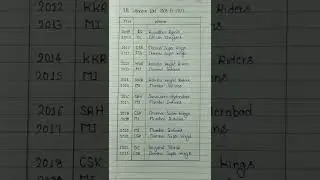 IPL Winners List 2008 to 2023
Year Winner
2008 RR Rajasthan Royals
2009 DC Deccan Chargers
2010 CSK Chennai Super Kings
2011 CSK Chennai Super Kings
2012 KKR Kolkata Knight Riders
2013 MI Mumbai Indians
2014 KKR Kolkata Knight Riders
2015 MI Mumbai Indians
2016 SRH Sunrisers Hyderabad
2017 MI Mumbai Indians
2018 CSK Chennai Super Kings
2019 MI Mumbai Indians
2020 MI Mumbai Indians
2021 CSK Chennai Super Kings
2022 GT Gujarat Titans
2023 CSK Chennai Super Kings